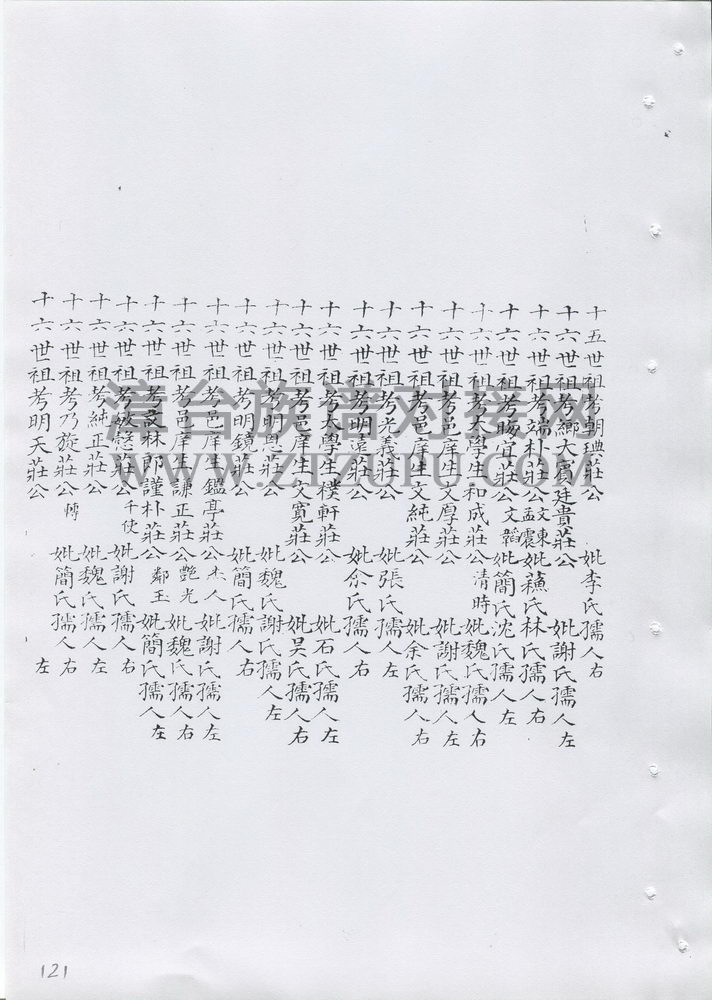 十五世祖考朝琠莊公 妣李氏孺人右
十六世祖考鄉大賓廷貴莊公 妣謝氏孺人左
十六世祖考端朴莊公文東孟震妣蘓氏林氏孺人右
十六世祖考賜宜莊公文韜妣簡氏沈氏孺人左
十六世祖考大學生和成莊公清時妣魏氏孺人右
十六世祖考邑庠生文厚莊公 妣謝氏孺人左
十六世祖考邑庠生文純莊公 妣余氏孺人右
十六世祖考光義莊公 妣張氏孺人左
十六世祖考明遠莊公 妣余氏孺人右
十六世祖考大學生樸軒莊公 妣石氏孺人左
十六世祖考邑庠生文寬莊公 妣吴氏孺人右
十六世祖考明恩莊公 妣魏氏謝氏孺人左
十六世祖考明鏡莊公 妣簡氏孺人右
十六世祖考邑庠生鑑亭莊公杰人妣謝氏孺人左
十六世祖考邑庠生謙正莊公艷光妣魏氏孺人右
十六世祖考林郎謹朴莊公鄰玉妣簡氏孺人左
十六世祖考莊公千使妣謝氏孺人右
十六世祖考純正莊公 妣魏氏孺人左
十六世祖考乃旋莊公 妣簡氏孺人右
十六世祖考明天莊公 左
漳台族谱对接网
WWW.ZTZUPU.COM
121